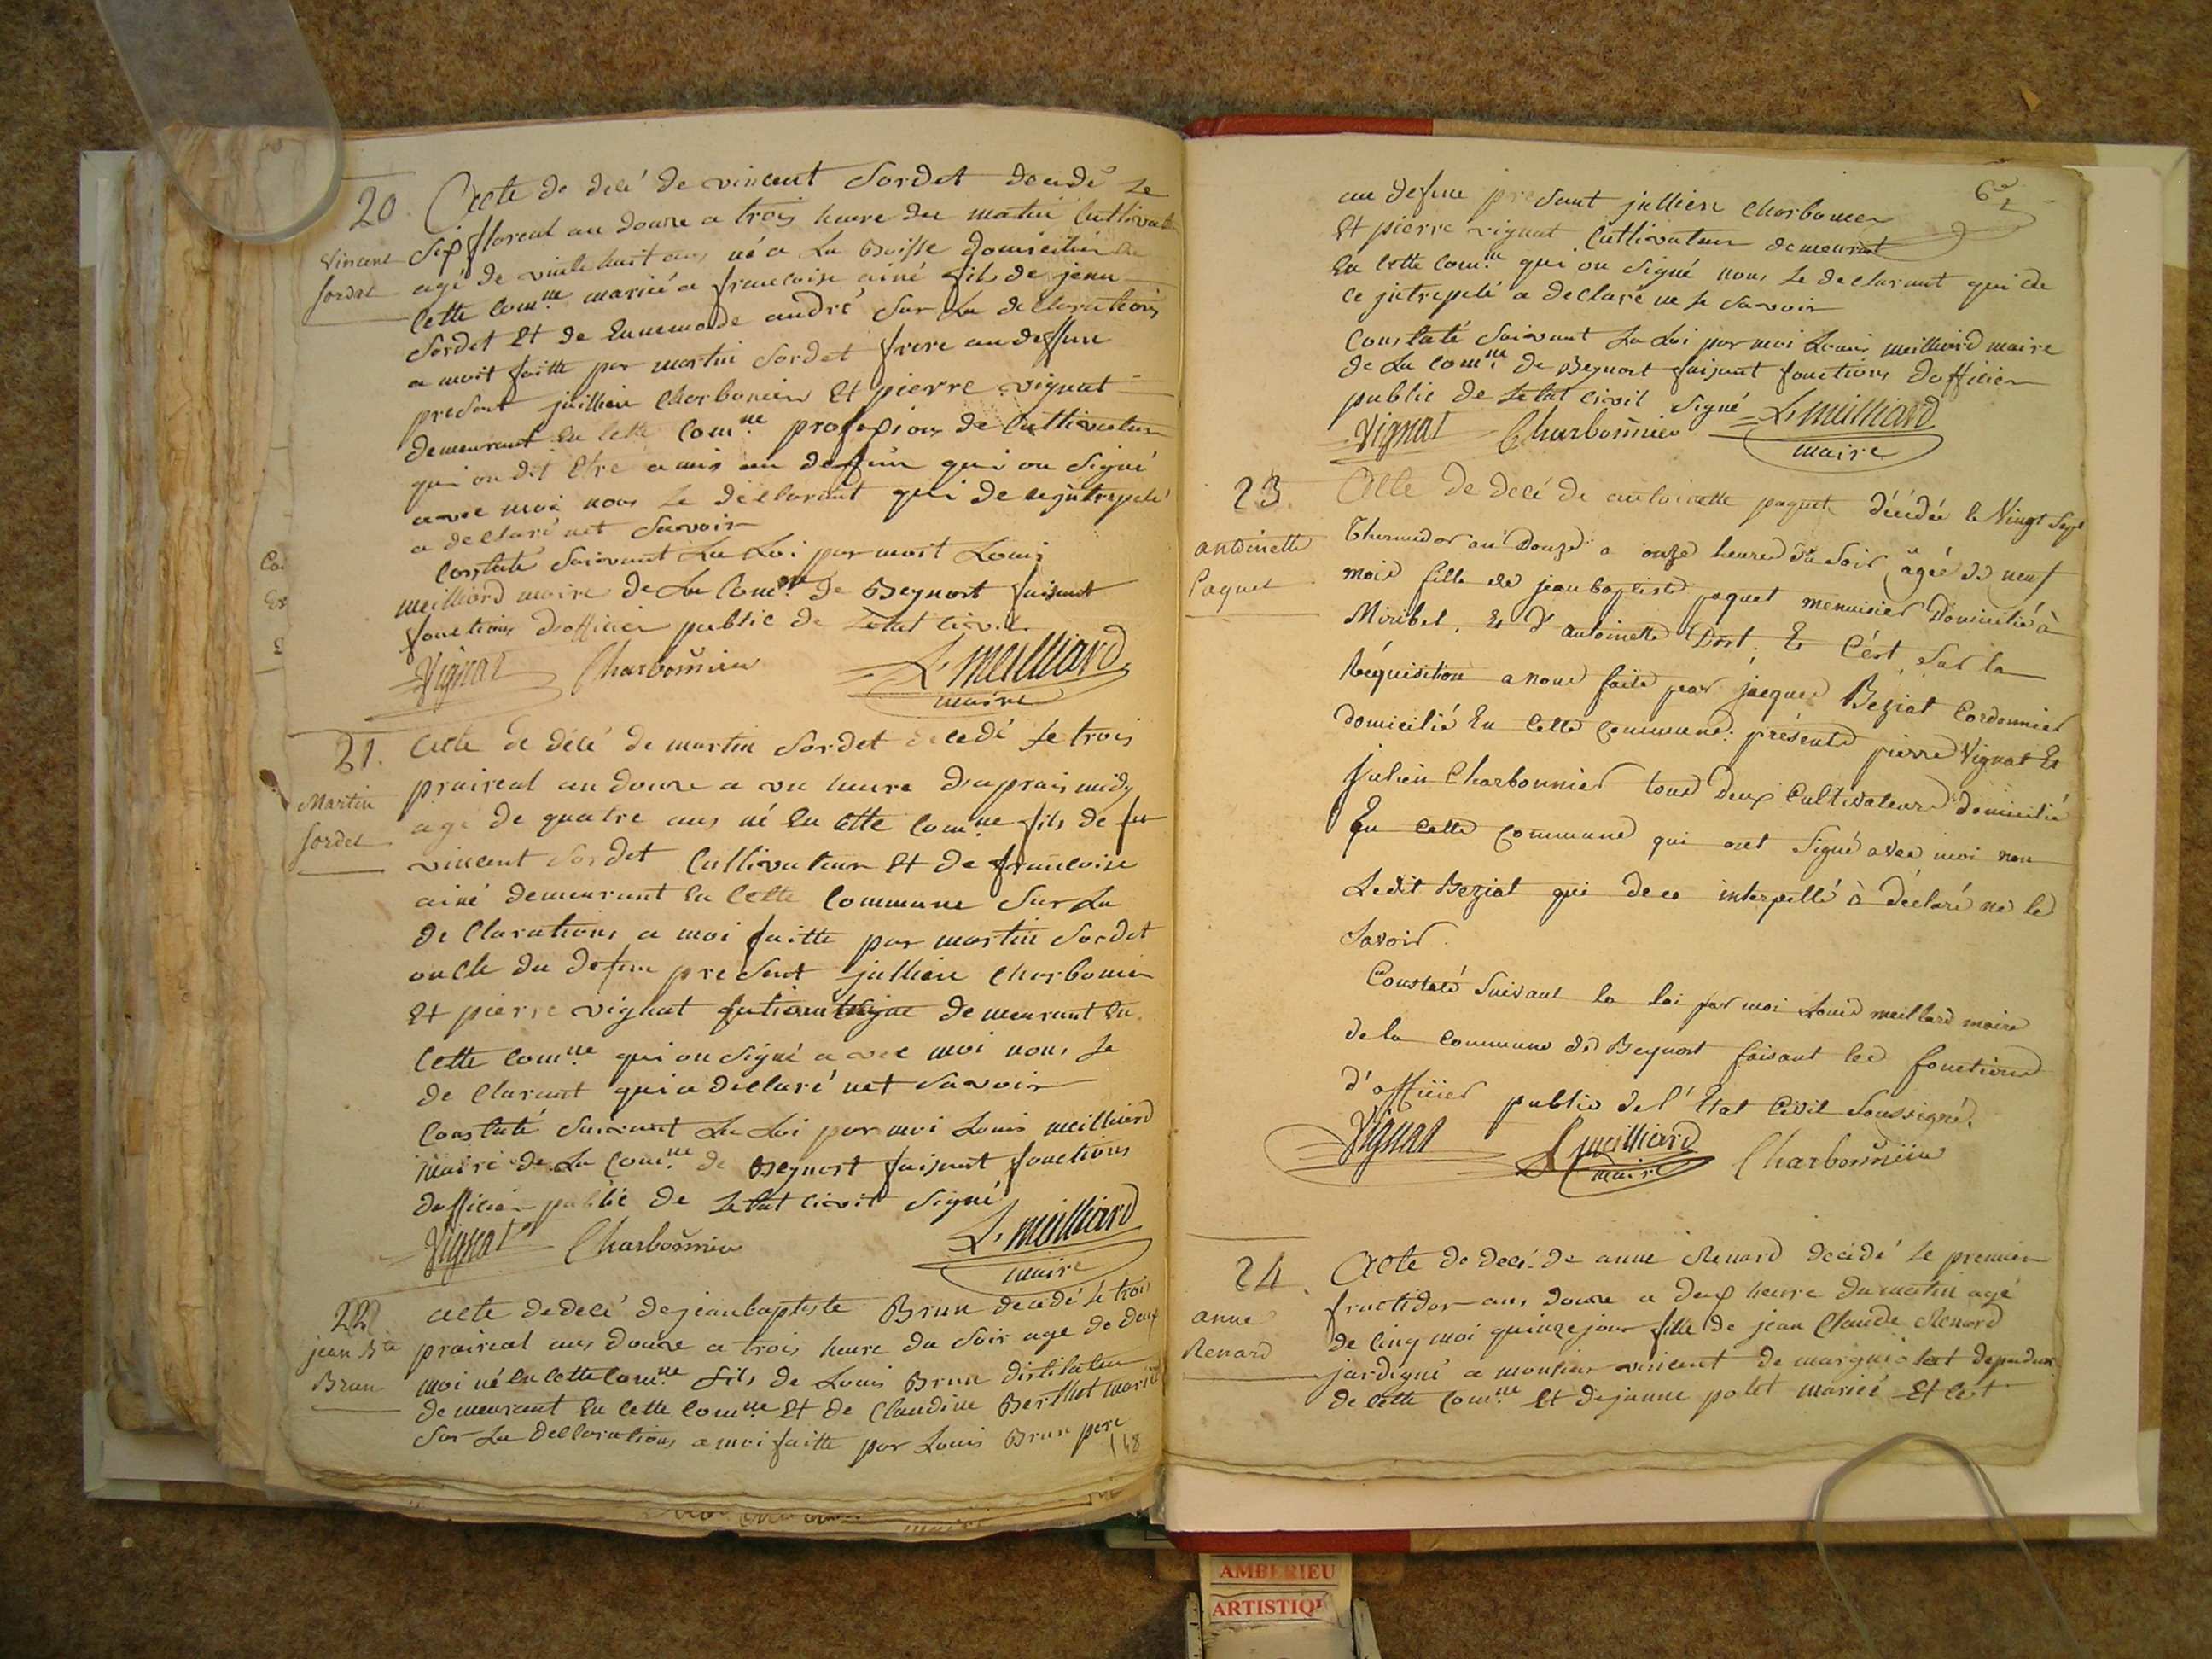 20
Vincent
Sordet
Acte de decé de vincent Sordet decedé Le
Six floreal an douze a trois heure du matin Cultivateur
agé de vinte huit ans né a La Boisse domicilié
Cette Com.ne marié a francoise ainé fils de jean
Sordet Et de Ennemonde andré Sur La declarations
a moit faitte par martin Sordet frere au deffun
presant jullien Charbonier Et pierre vignat
demeurant En Cette Com.ne professions de Cultivateur
qui on dit Etre amis au deffun qui on Signé
avec moi nons Le declarant qui de ce jntrepelé
a declaré net Savoir
Constaté Suivant La Loi par moit Louis
meilliard maire de La Com.ne de Beynost faisant
fonctions dofficier public de Letat Civil
Vignat Charbonnier L. Meilliard
maire
21.
Martin
Sordet
acte de décé de martin Sordet decedé Le trois
praireal an douze a un heure dapraismidy
agé de quatre ans né En Cette Com.ne fils de fu
vincent Sordet Cultivateur Et de francoise
ainé demeurant En Cette Commune Sur La
de Clarations a moi faitte par martin Sordet
oncle du defun presant jullien Charbonier
Et pierre vignat demeurant En
Cette Com.ne qui on Signé avec moi nons Le
de Clarant qui a declaré net Savoir
Constaté Suivant La Loi par moi Louis meilliard
maire de La Com.ne de Beynost faisant fonctions
dofficier public de Letat Civil Signé
Vignat Charbonnier L. meilliard
maire
22
jean Bte
Brun
acte de decé de jean baptiste Brun decedé Le trois
praireal ans douze a trois heure du Soir age de deux
moi né En Cette Com.ne fils de Louis Brun distilateur
demeurant En Cette Com.ne Et de Claudine Berthot marié
Sur La declarations a moi faitte par Louis Brun pere
148
au defun presant jullien Charbonier
Et pierre vignat Cultivateur demeurant
En Cette Com.ne qui on Signé nons Le declarant qui de
ce jntrepelé a declaré ne Le Savoir
Constaté Suivant La Loi par moi Louis meilliard maire
de La Com.ne de Beynost faisant fonctions dofficier
public de Letat Civil Signé L. Meilliard
Vignat Charbonnier maire
23.
antoinette
Paquet
Acte de decé de antoinette paquet décédée le Vingt Sept
Thermidor an Douze a onze heures du Soir âgée de neuf
mois fille de jean baptiste paquet menuisier Domicilié à
Miribel, Et d'antoinette Dost. Et C'est Sur la
Réquisition a nous faite par jacques Béziat Cordonnier
domicilié En Cette Commune: présents pierre Vignat Et
Julien Charbonnier tous deux Cultivateurs domicilié
En Cette Commune qui ont Signé avec moi non
Ledit Beziat qui de ce interpellé à déclaré ne le
Savoir.
Constaté Suivant la loi par moi Louis meillard maire
de la Commune de Beynost faisant les fonctions
d'officier public de l'Etat Civil Soussigné.
Vignat L meilliard Charbonnier
maire
24.
anne
Renard
Acte de decé de anne Renard decédé Le premier
fructidor ans douze a deux heure du matin agé
de Cinq moi quinze jour fille de jean Claude Renard
jardigné a monsieur vincent de margniolat
de Cette Com.ne Et de janne potet marièe Et Cest
AMBERIEU
ARTISTIQ